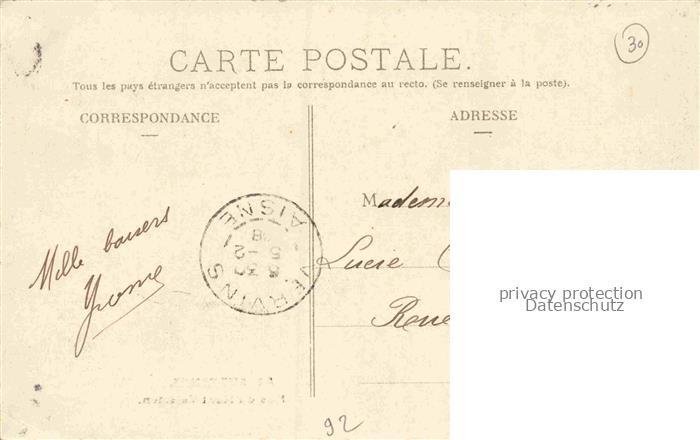 30
CARTE POSTALE.
Tous les pays étrangers n'acceptent pas la correspondance au recto. (Se renseigner à la poste).
CORRESPONDANCE
ADRESSE
Mille baisers
Yvonne
VERVINS
AISNE
Madem
Lucie
privacy protection
Datenschutz
92